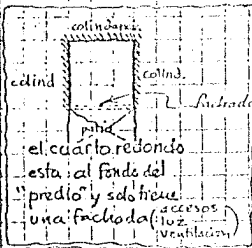 colindancia
colind.
colind.
fachada
patio
el cuarto redondo
esta al fondo del
"predio" y solo tiene
una fachada (accesos
luz
ventilacion)